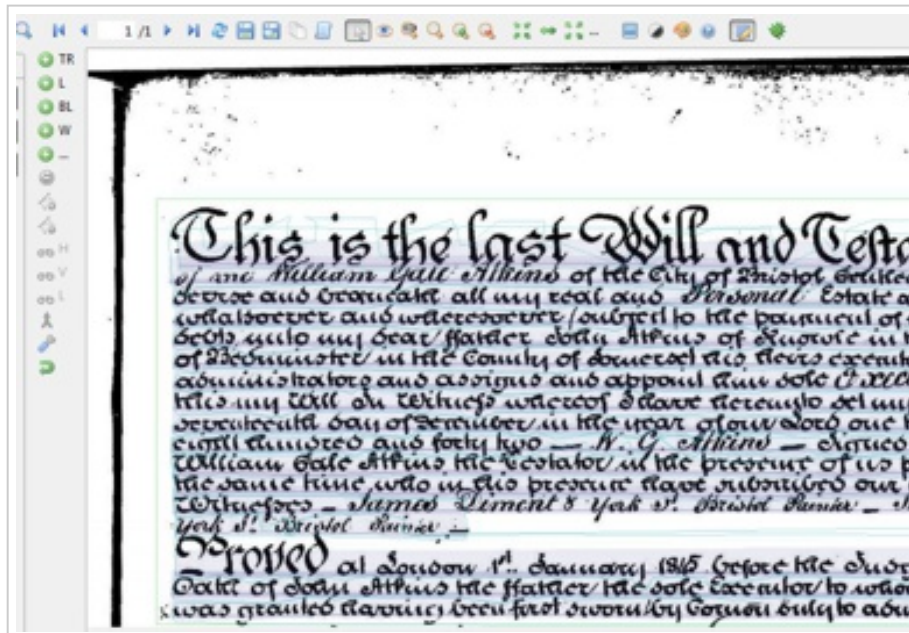 1 /1
TR
L
BL
W
...
H
V
L
This is the last Will and Testa
of me William Gale Atkins of the City of Bristol
devise and bequeath all my real and Personal Estate
whatsoever and wheresoever (subject to the payment of
debts unto my dear ffather John Atkins of in
of Bedminster in the County of Somerset his heirs
administrators and assigns and appoint him sole
this my Will In Witness whereof I have hereunto set my
seventeenth day of December in the year of our Lord one
eight hundred and forty two — W. G. Atkins — Signed
William Gale Atkins the Testator in the presence of us
the same time who in his presence have subscribed our
Witnesses — James Diment 8 York St. Bristol Painter —
York St. Bristol Painter —
Proved at London 1st. January 1845 before the
Oath of John Atkins the ffather the sole Executor to whom
was granted having been first sworn by Comon duly to